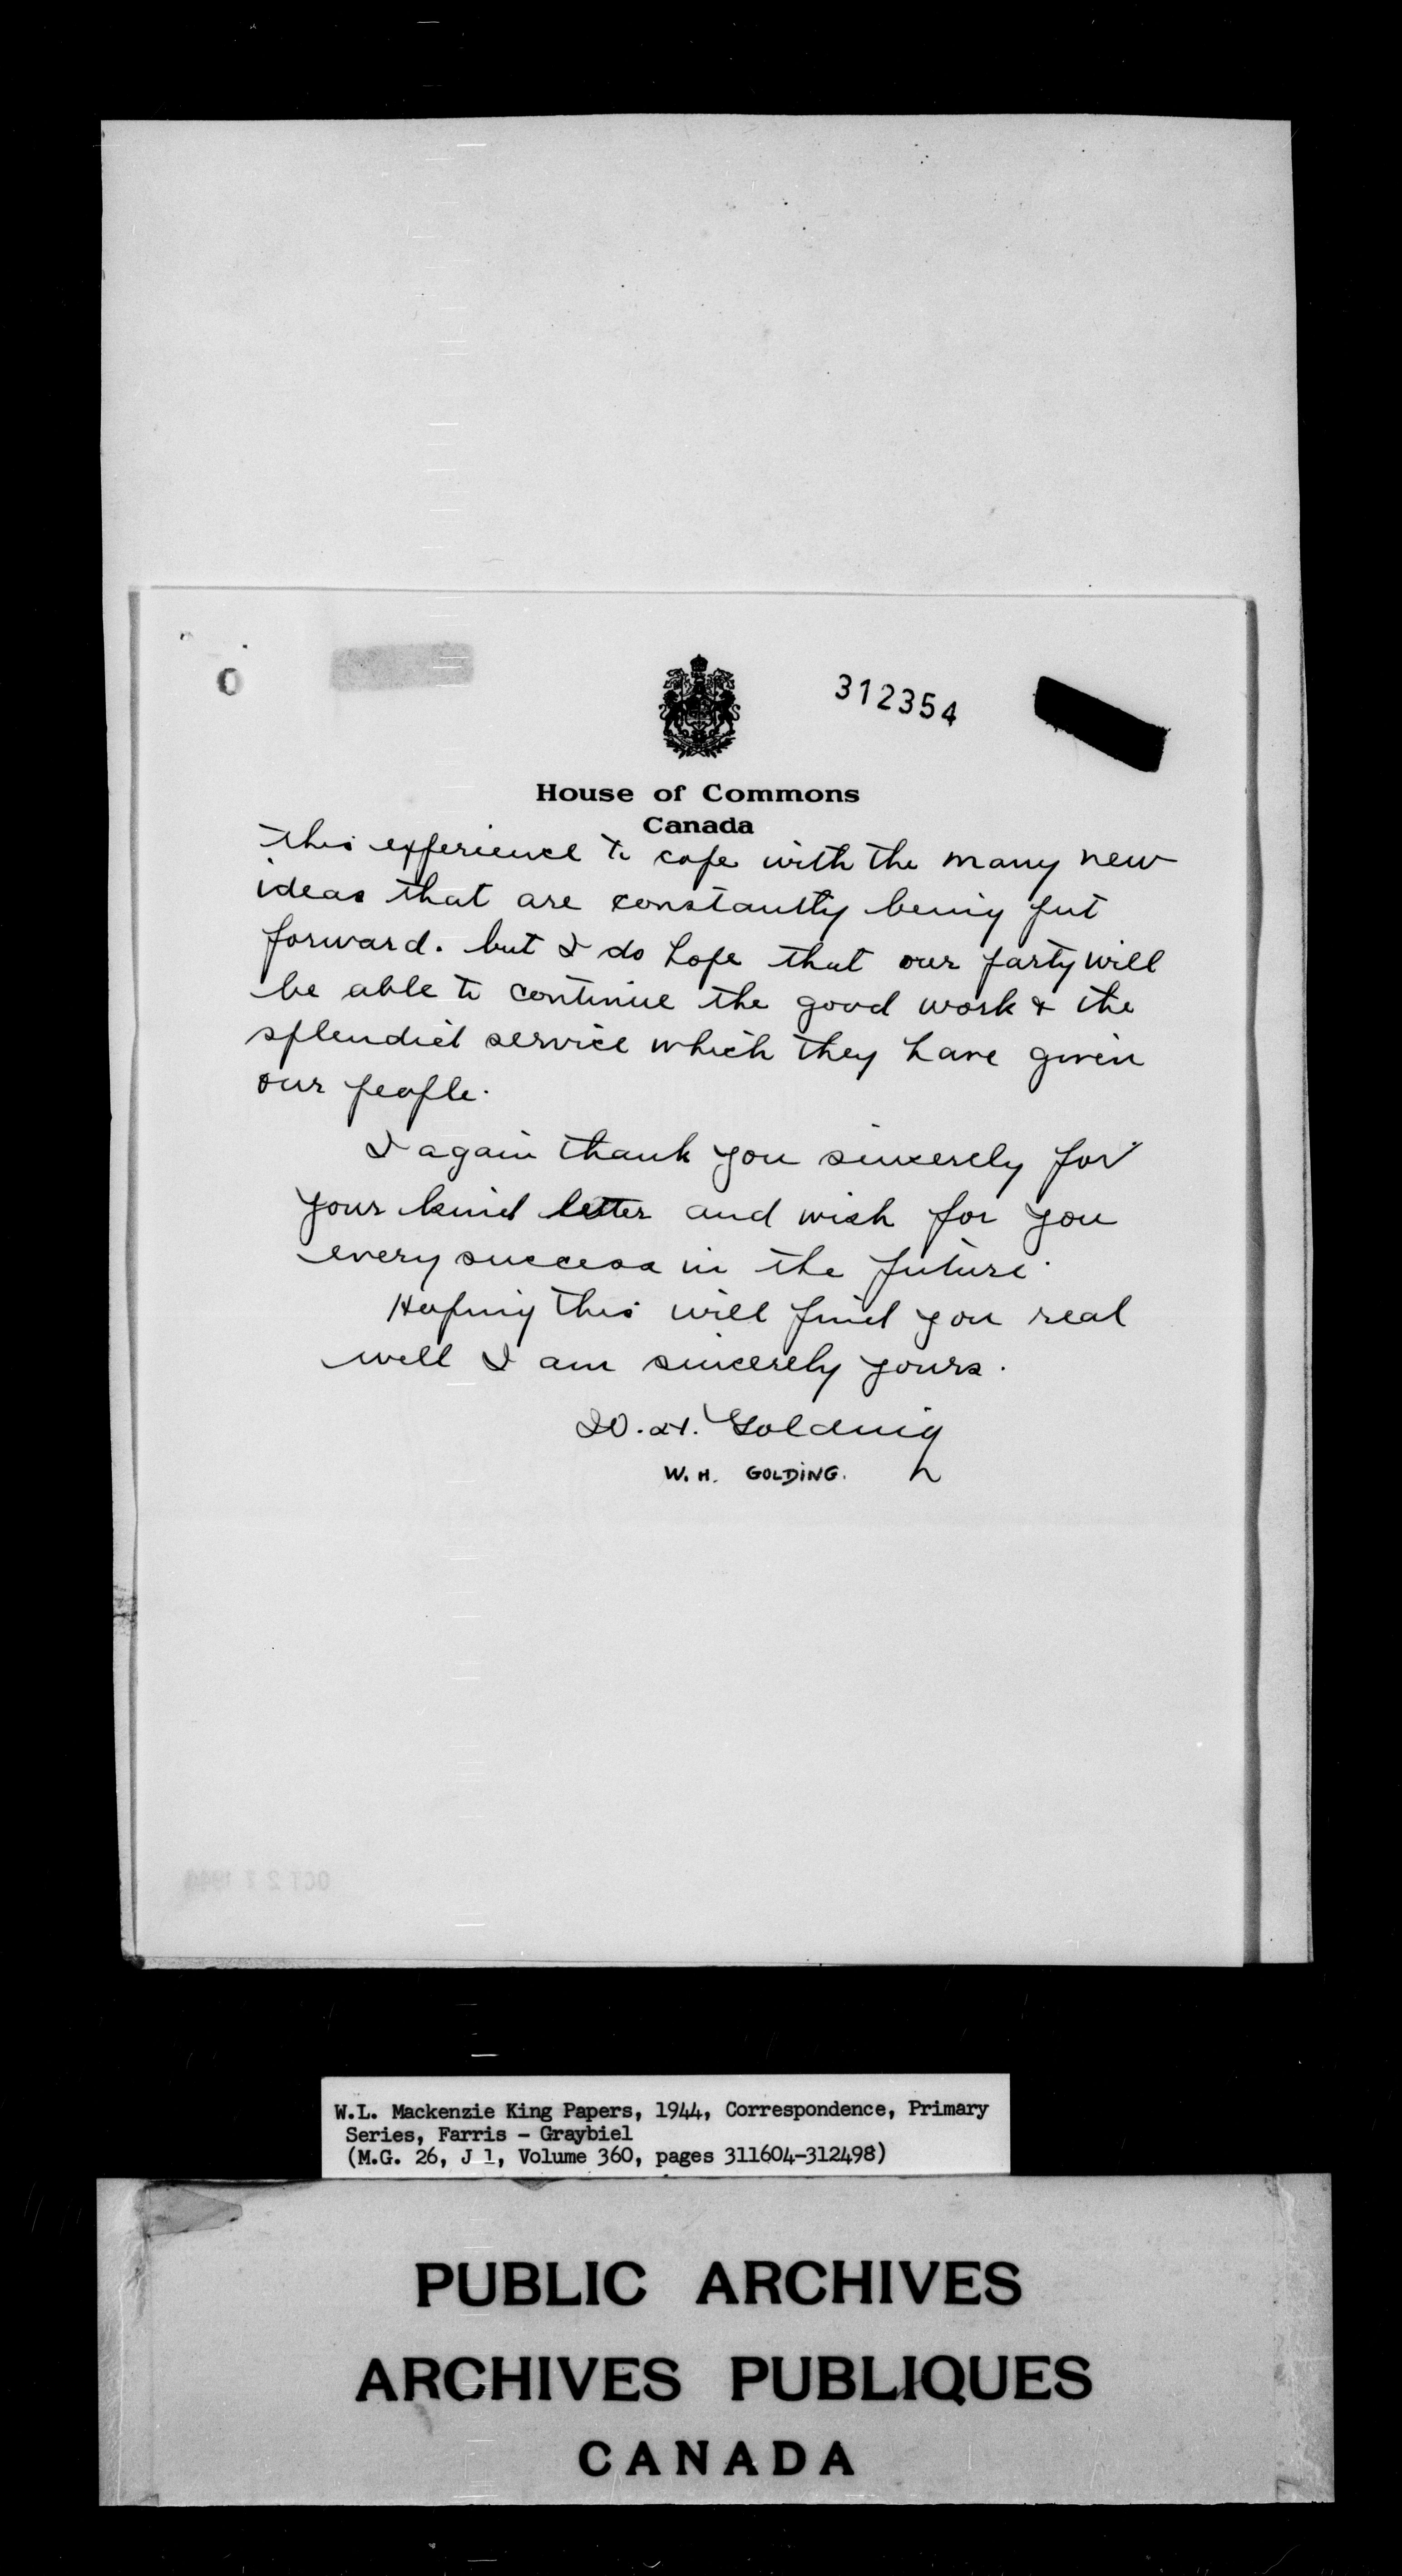 312354
House of Commons
Canada
this experience to cope with the many new
ideas that are constantly being put
forward. but I do hope that our party will
be able to continue the good work & the
splendid service which they have given
our people.
I again thank you sincerely for
your kind letter and wish for you
every success in the future.
Hoping this will find you real
well I am sincerely yours.
W. H. Golding
W. H. GOLDING.
OCT 27 1944
W.L. Mackenzie King Papers, 1944, Correspondence, Primary
Series, Farris - Graybiel
(M.G. 26, J 1, Volume 360, pages 311604-312498)
PUBLIC ARCHIVES
ARCHIVES PUBLIQUES
CANADA